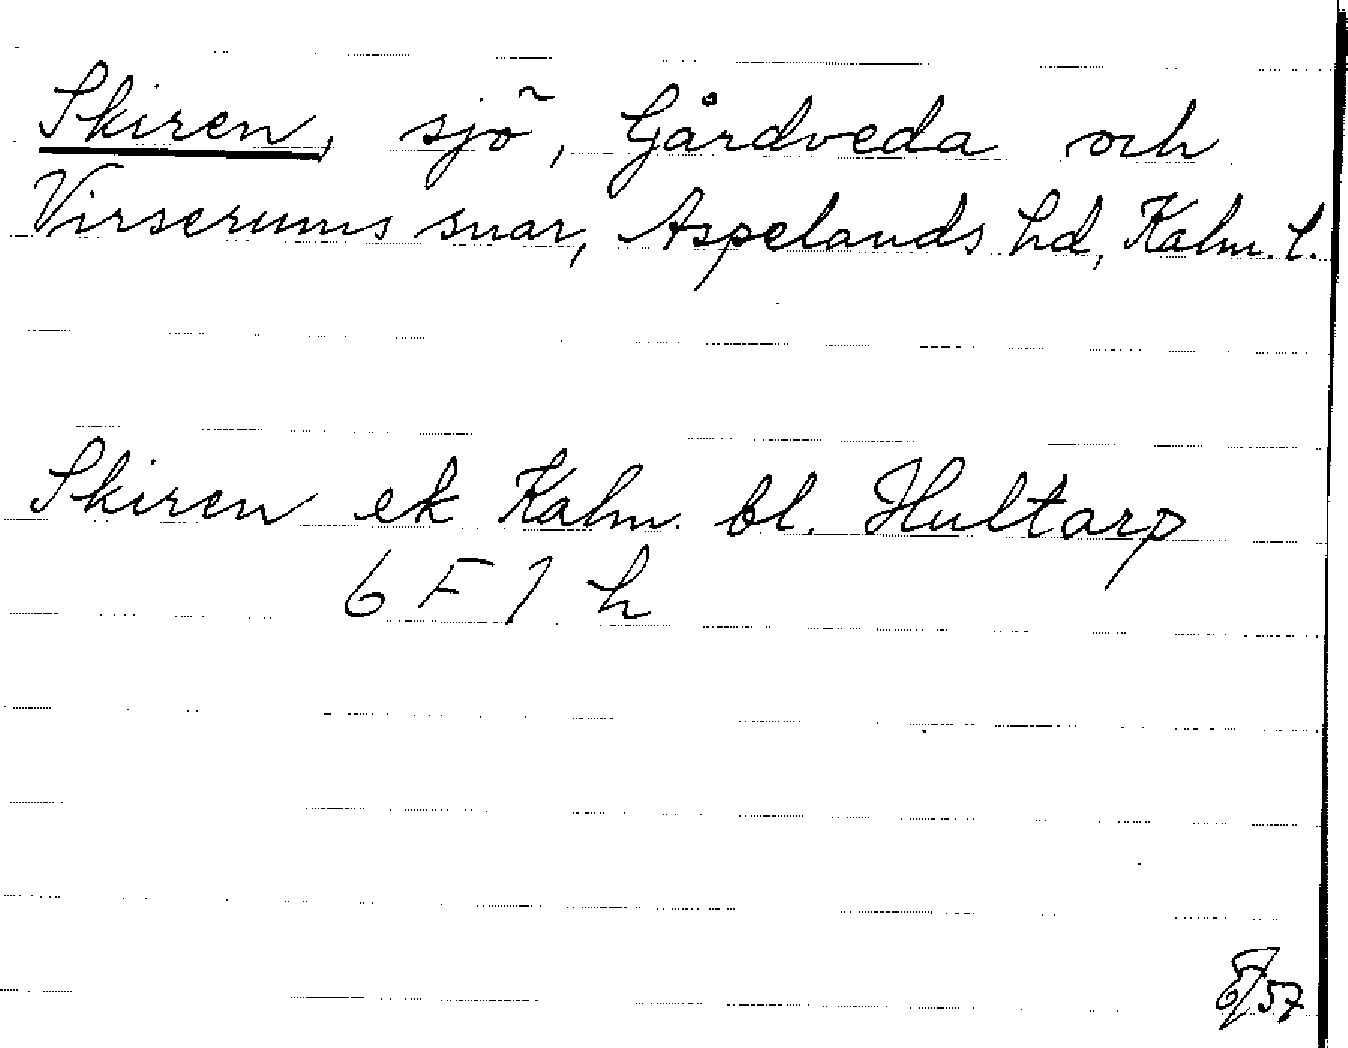 Skiren, sjö, Gårdveda och
Virserums snar, Aspelands hd, Kalm. l.
Skiren ek Kalm. bl. Hultarp
6 F 7 h
57